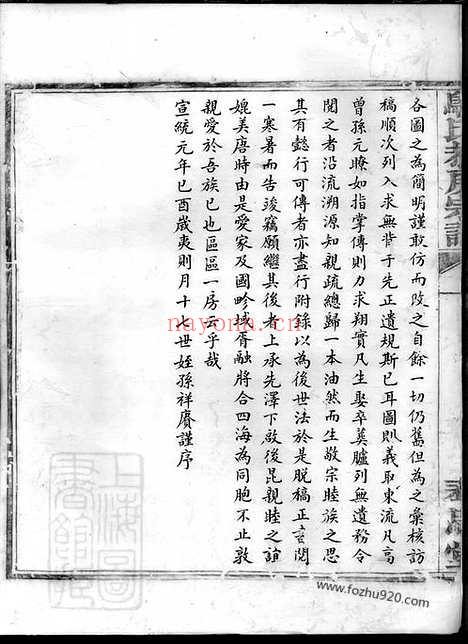 各圖之為簡明謹敢仿而改之自餘一切仍舊但為之彙核訪
稿順次列入求無背于先正遺規斯已耳圖則義取東流凡高
曾孫元瞭如指掌傳則力求翔實凡生娶卒葬臚列無遺務令
閱之者沿流溯源知親疏總歸一本油然而生敬宗睦族之思
其有懿行可傳者亦盡行附錄以為後世法於是脫稿正言閱
一寒暑而告竣竊願繼其後者上承先澤下啟後昆親睦之誼
媲美唐時由是愛家及國畛域胥融將合四海為同胞不止敦
親愛於吾族已也區區一房云乎哉
宣統元年己酉歲夷則月十七世姪孫祥賡謹序
氏 房宗譜
nayona.cn
上海圖書館藏
www.fozhu920.com